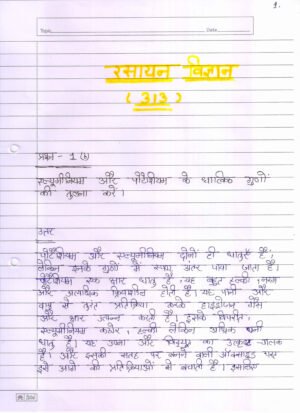 1.
Topic
Date
रसायन विज्ञान
(313)
प्रश्न - 1 (b)
एल्यूमीनियम और पोटैशियम के धात्विक गुणों
की तुलना करें।
उत्तर
पोटैशियम और एल्यूमीनियम दोनों ही धातुएँ हैं,
लेकिन इनके गुणों में स्पष्ट अंतर पाया जाता है।
पोटैशियम एक क्षार धातु है, यह बहुत हल्की, नरम
और अत्यधिक क्रियाशील होती है। यह पानी और
वायु से तुरंत अभिक्रिया करके हाइड्रोजन गैस
और क्षार उत्पन्न करती है। इसके विपरीत,
एल्यूमीनियम कठोर, हल्की लेकिन अधिक
धातु है। यह ऊष्मा और विद्युत का उत्कृष्ट चालक
है। और इसकी सतह पर बनने वाली ऑक्साइड परत
इसे आगे की अभिक्रियाओं से बचाती है। इसलिए